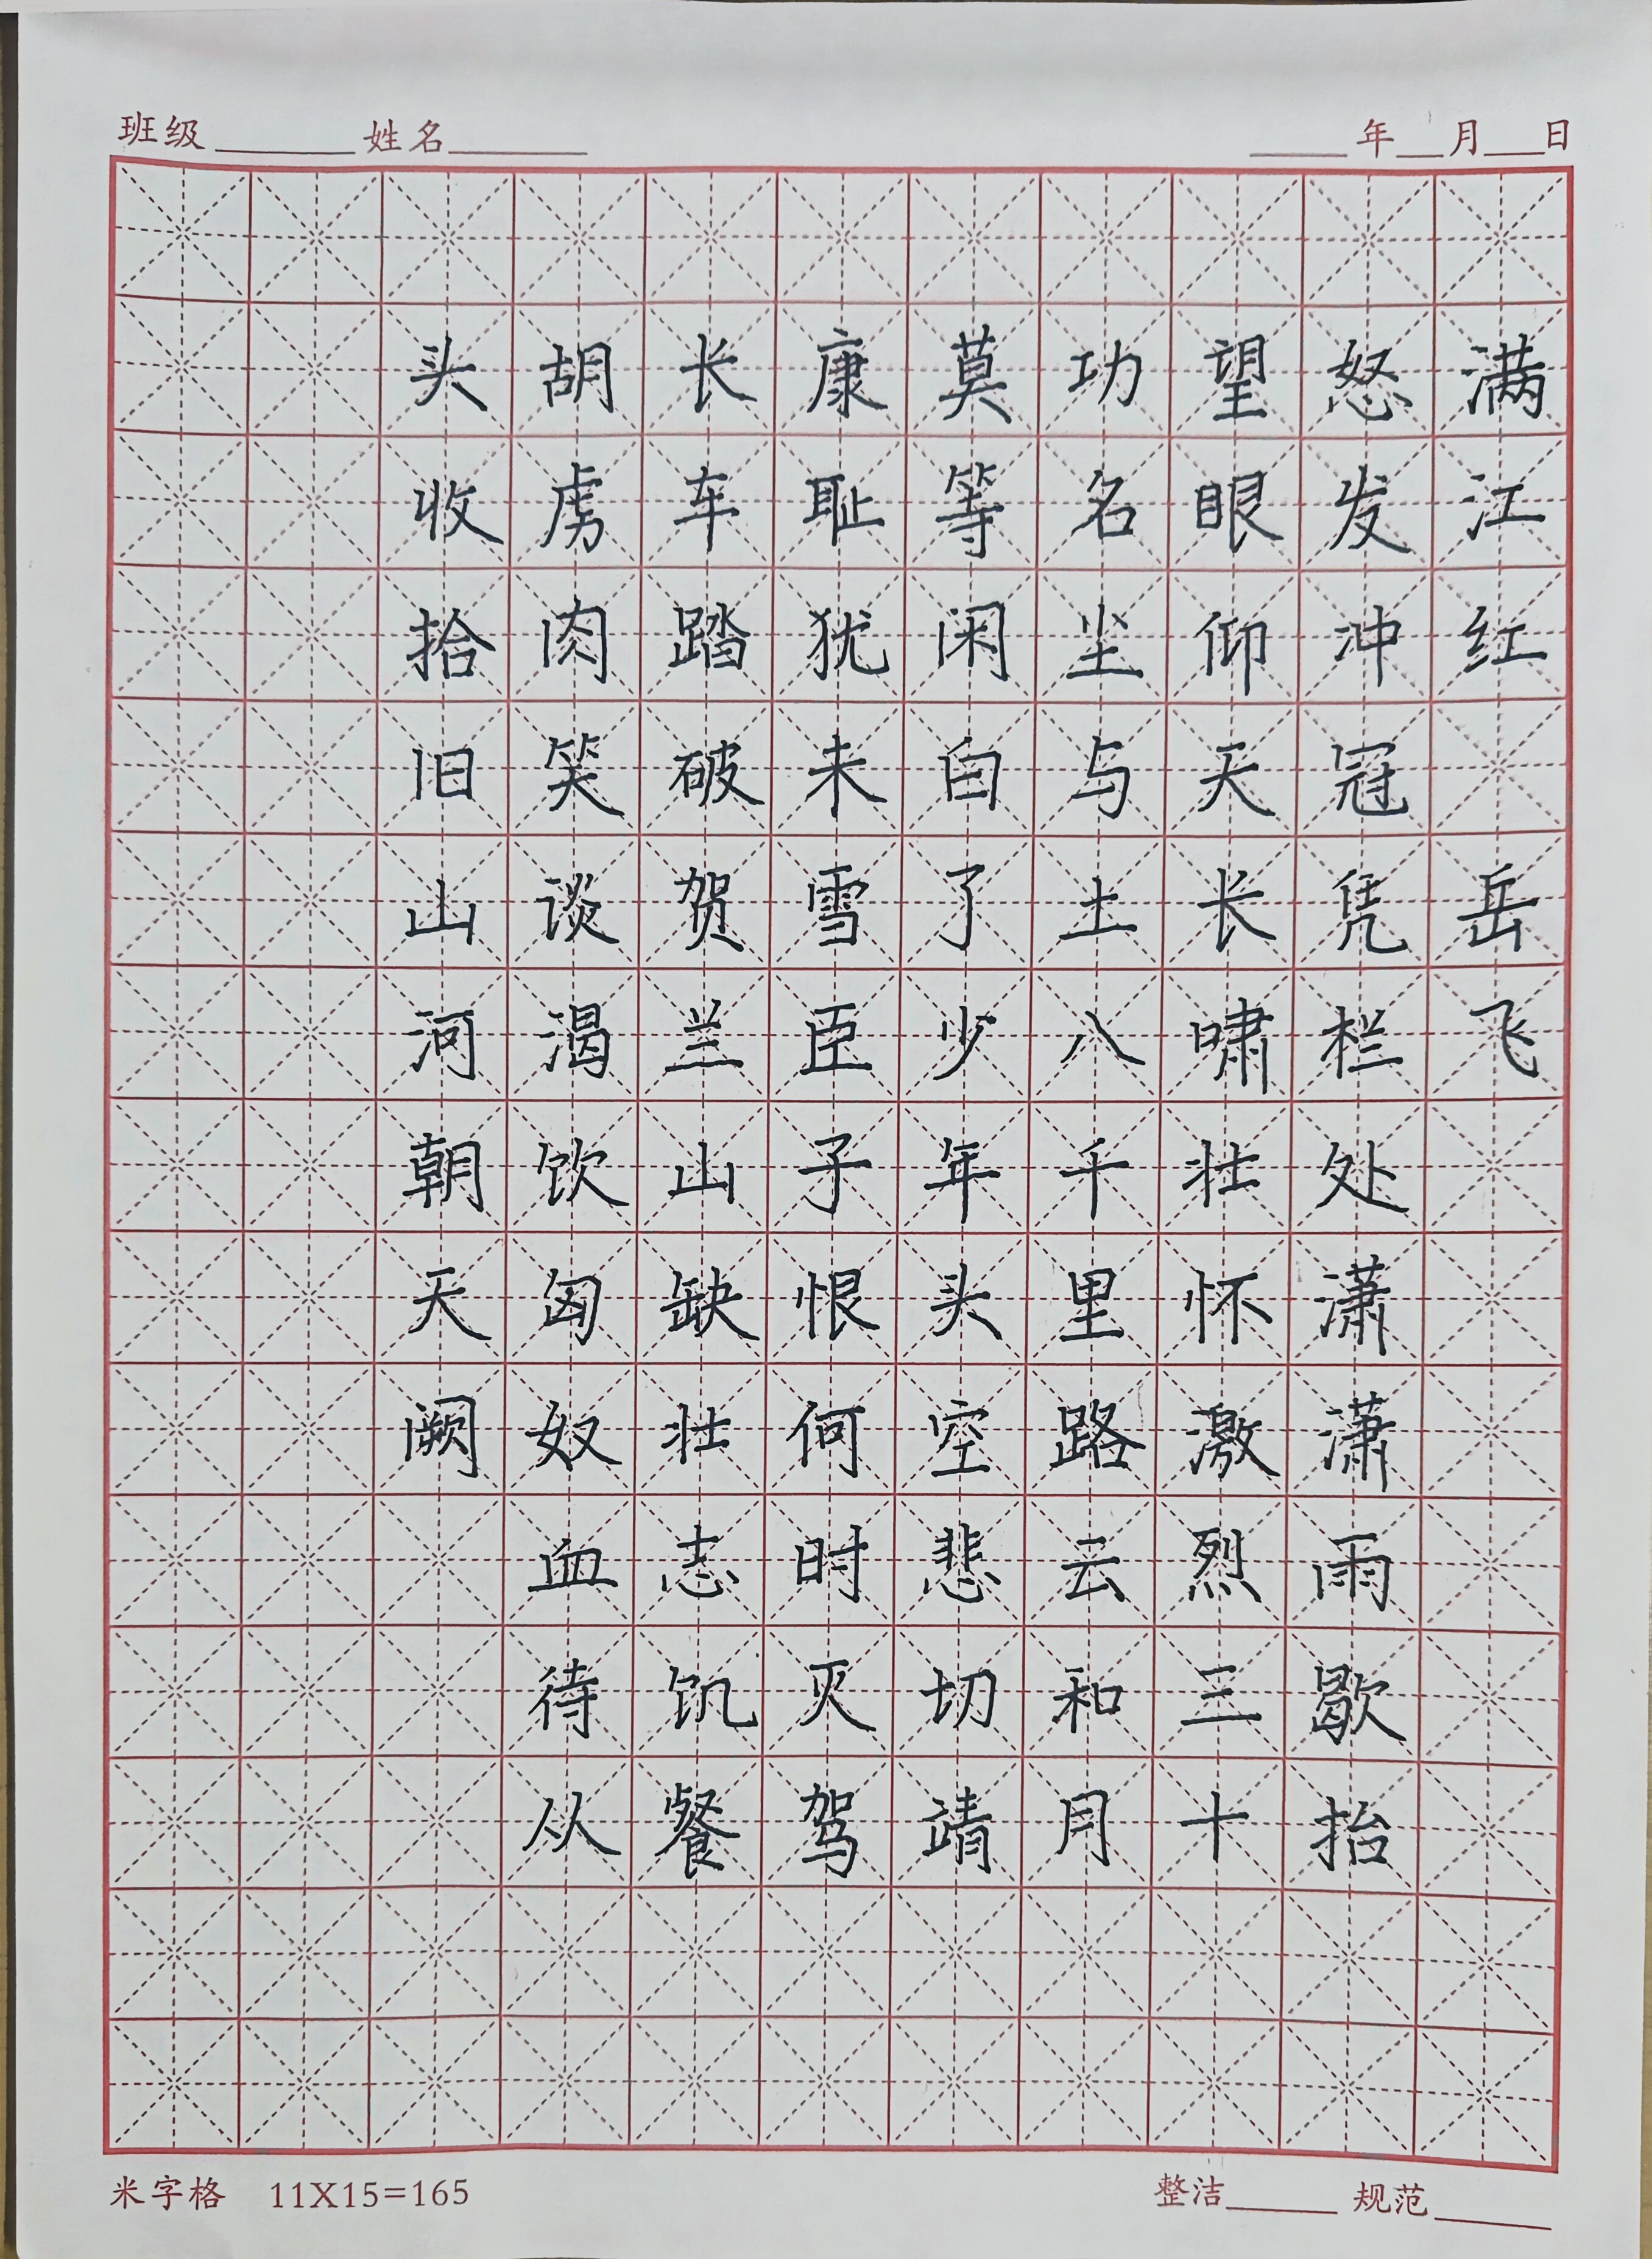 班级 姓名 年 月 日
满江红 岳飞
怒发冲冠凭栏处潇潇雨歇抬
望眼仰天长啸壮怀激烈三十
功名尘与土八千里路云和月
莫等闲白了少年头空悲切靖
康耻犹未雪臣子恨何时灭驾
长车踏破贺兰山缺壮志饥餐
胡虏肉笑谈渴饮匈奴血待从
头收拾旧山河朝天阙
米字格 11X15=165 整洁 规范